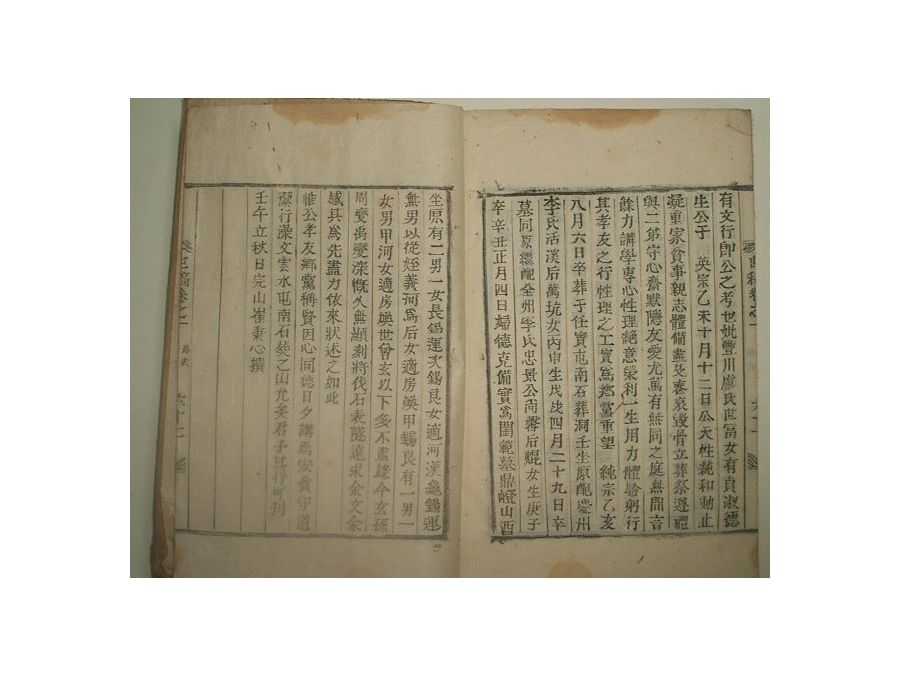 有文行即公之考也妣豐川盧氏世冨女有貞淑德
生公于 英宗乙未十月十二日公天性純和動止
凝重家貧事親志體備盡及喪哀毀骨立葬祭遵禮
與二弟守心齋默隱友愛尤萬有無同之庭無間言
餘力講學專心性理絶意榮利一生用力體驗躬行
其孝友之行性理之工實爲鄕黨重望 純宗乙亥
八月六日卒葬于任實屯南石葬洞壬坐原配慶州
李氏活溪后萬坑女丙申生戊戌四月二十九日卒
墓同原繼配全州李氏忠景公尚馨后焜女生庚子
卒辛丑正月四日婦德克備實爲閨範墓鼎嶝山酉
世稿卷之一
坐原有二男一女長錫運次錫良女適河漢龜錫運
無男以從姪義河爲后女適房煥甲錫良有一男一
女男甲河女適房煥世曾玄以下多不盡錄今玄孫
周燮禹燮深慨久無顯刻將伐石表隧遠求余文余
感其爲先盡力依來狀述之如此
維公孝友鄉黨稱賢因心同德日夕講焉安貧守道
潔行澡文雲水屯南石葬之山尤矣君子其行可刊
壬午立秋日完山崔秉心撰
世稿卷之一 墓表 六十二